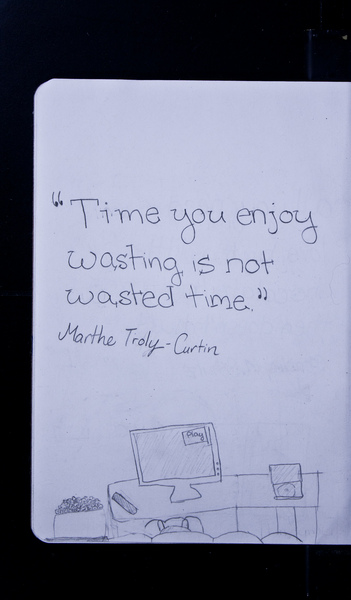 “Time you enjoy
wasting is not
wasted time.”
Marthe Troly-Curtin
Play